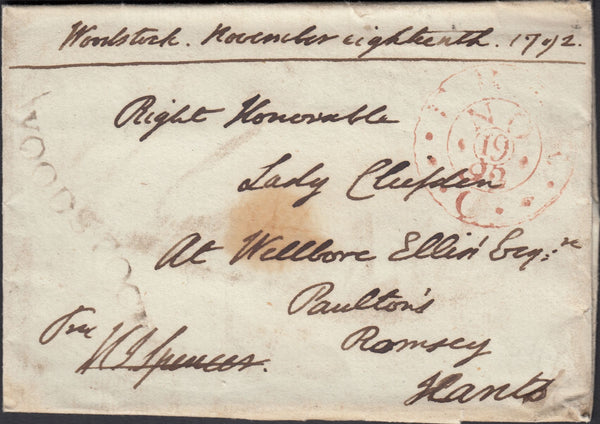 Woodstock. November eighteenth. 1792.
Right Honorable
Lady Cliefden
At Wellbore Ellis' Esq:re
Paulton's
Romsey
Hants
Free
Spencer.
WOODSTOC
NO
19
95
C